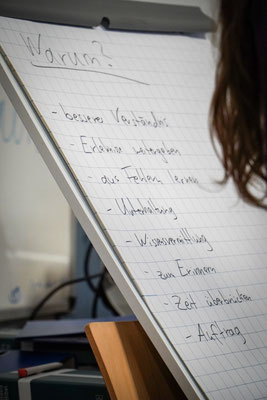 Warum?
- besseres Verständnis
- Erlebnisse weitergeben
- aus Fehlern lernen
- Unterhaltung
- Wissensvermittlung
- zum Erinnern
- Zeit überbrücken
- Auftrag